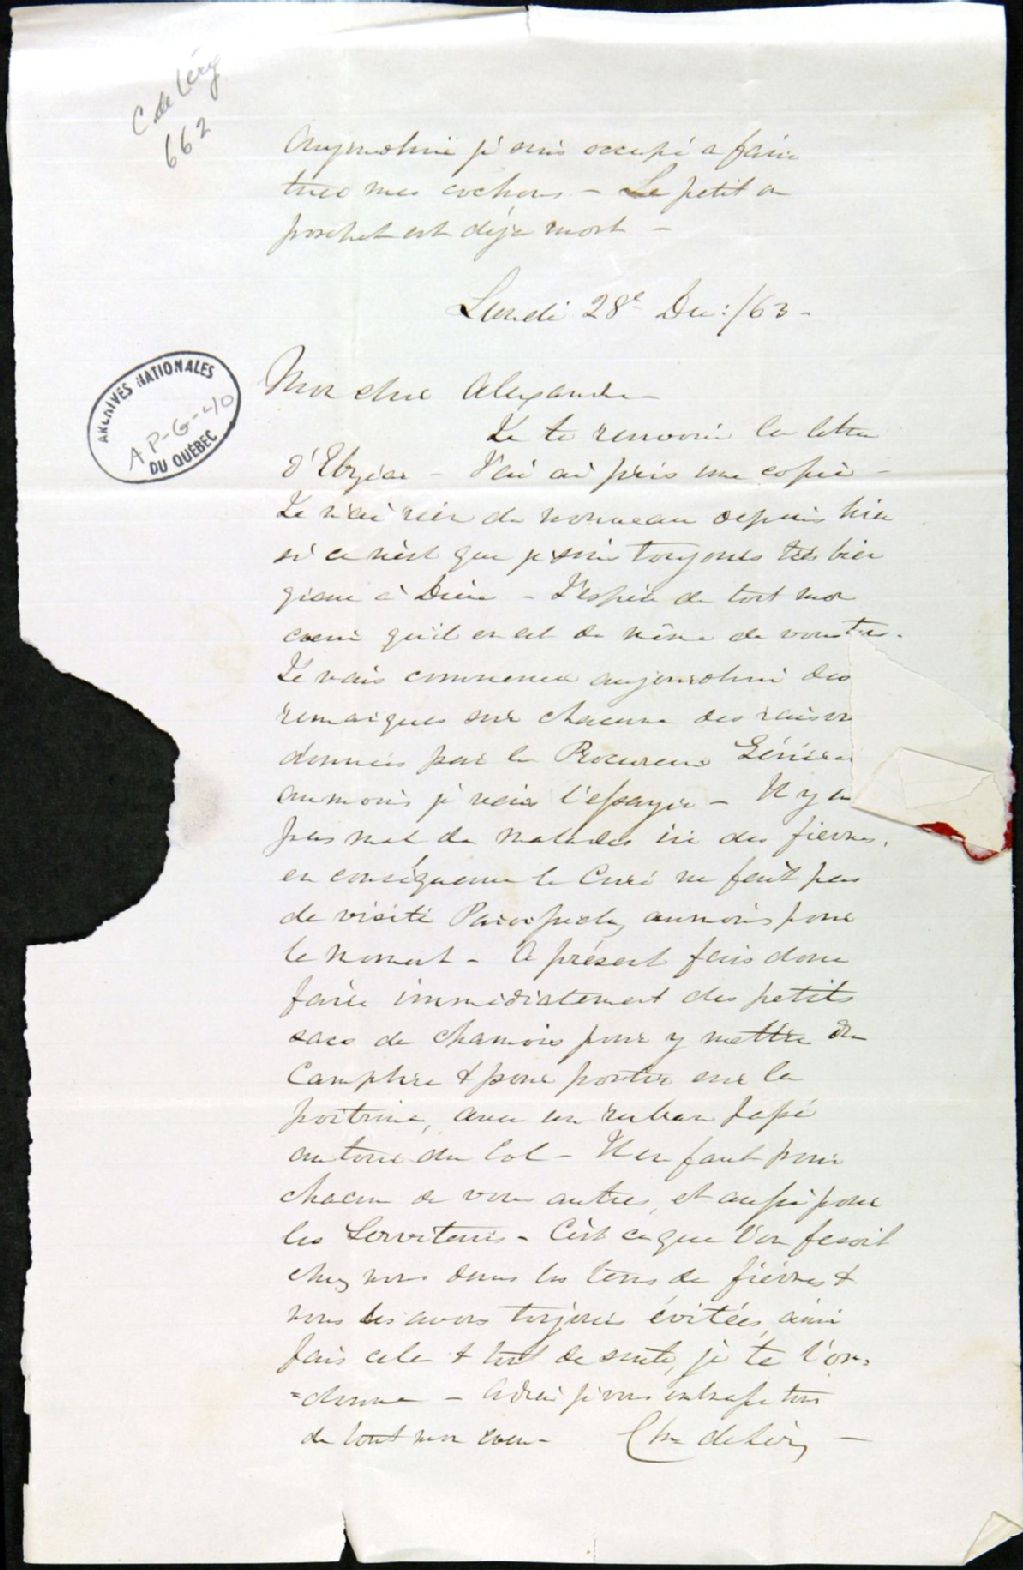 C de Léry
662
Aujourdhui je suis occupé a faire
tuer mes cochons - Le petit a
est déja mort -
Lundi 28e Dec: /63 -
ARCHIVES NATIONALES
AP-G-40
DU QUÉBEC
Mon cher Alexandre -
Je te renvoie la lettre
d'Elzéar - J'en ai pris une copie -
Je n'ai rien de nouveau depuis hier
si ce n'est que je suis toujours très bien
grace à Dieu - J'espère de tout mon
coeur qu'il en est de même de vous tous.
Je vais commencer aujourdhui des
remarques sur chacune des raisons
données par le Procureur Général
aumoins je vais l'essayer - Il y a
pas mal de malades ici des fièvres,
en conséquence le Curé ne fait pas
de visite Paroissiale, aumoins pour
le moment - A présent fais donc
faire immédiatement des petits
sacs de chamois pour y mettre du
Camphre & pour porter sur la
poitrine, avec un ruban passé
autour du Col - Il en faut pour
chacun de vous autres, et aussi pour
les Serviteurs - C'est ce que l'on fesoit
chez nous dans les tems de fièvres &
nous les avons toujours évitées, ainsi
fais cela & tout de suite, je te l'or=
=donne - Adieu je vous embrasse tous
de tout mon coeur - Chs deLéry -